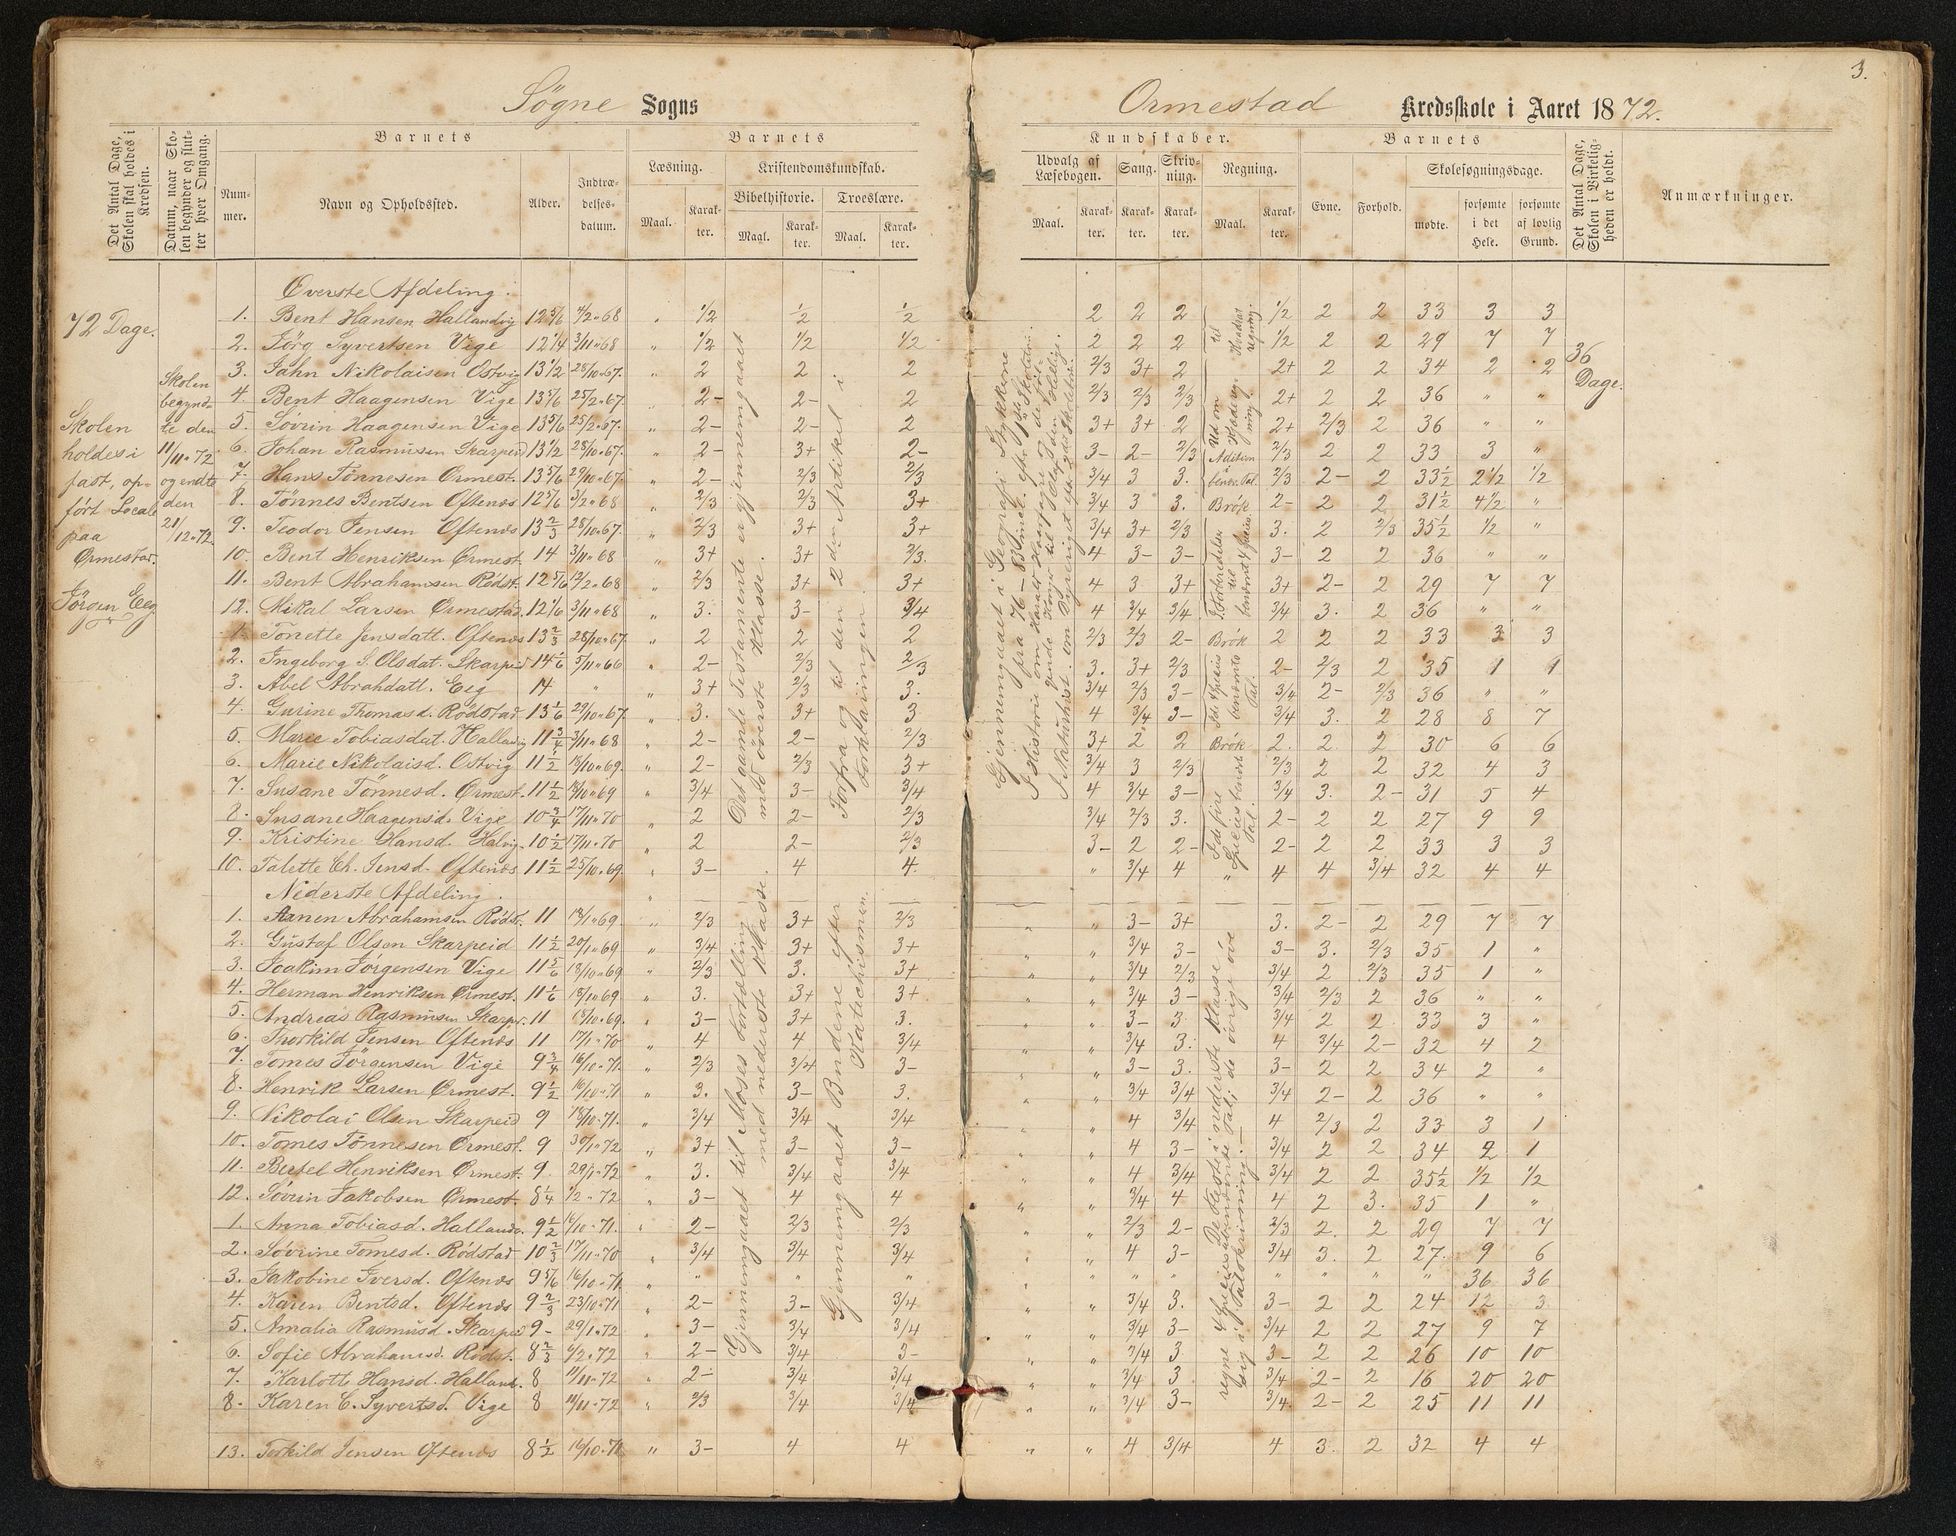 3.
Søgne Sogns
Ormestad Kredsskole i Aaret 1872.
Det Antal Dage, Skolen skal holdes i Kredsen.
Datum, naar Skolen begynder og slutter hver Omgang.
Barnets
Barnets
Kundskaber.
Barnets
Det Antal Dage, Skolen i Virkeligheden er holdt.
Anmærkninger.
Nummer.
Navn og Opholdssted.
Alder.
Indtrædelsesdatum.
Læsning.
Kristendomskundskab.
Udvalg af Læsebogen.
Sang.
Skrivning.
Regning.
Evne.
Forhold.
Skolesøgningsdage.
Bibelhistorie.
Troeslære.
Maal. Karakter. Maal. Karakter. Maal. Karakter.
Maal. Karakter. Karakter. Karakter. Maal. Karakter.
mødte. forsømte i det Hele. forsømte af lovlig Grund.
72 Dage.
Skolen holdes i fast, opført Locale paa Ormestad.
Jørgen Eeg
Skolen begyndte den 11/11.72 og endte den 21/12.72
36 Dage.
Øverste Afdeling.
1. Bent Hansen Hallandvig 12 5/6 4/2.68 " 1/2 1/2 1/2 2 2 2 1/2 2 2 33 3 3
2. Jørg Syvertsen Vige 12 1/4 3/11.68 " 1/2 1/2 1/2 2 2 2 1/2 2 2 29 7 7
3. Jahn Nikolaisen Ostvig 13 1/2 28/10.67. " 2 2 2 2/3 3+ 2 2+ 2 2 34 2 2
4. Bent Haagensen Vige 13 5/6 25/2.67 " 2- 2- 2 2/3 2/3 2/3 2+ 2 2 36 " "
5. Søvrin Haagensen Vige 13 5/6 25/2.67. " 2- 2- 2 3+ 3+ 2 2+ 2/3 2 36 " "
6. Johan Rasmusen Skarpeid 13 1/2 28/10.67. " 2- 3+ 2- 3- 2- 2/3 2/3 2 2 33 3 "
7. Hans Tønnesen Ormest. 13 5/6 29/10.67. " 2- 2/3 2/3 3/4 3 3. 2/3 2- 2 33 1/2 2 1/2 1/2
8. Tønnes Bentsen Oftenæs 12 5/6 3/2.68 " 2/3 2/3 3+ 3/4 3 3. 2- 2 2 31 1/2 4 1/2 "
9. Teodor Jensen Oftenæs 13 2/3 28/10.67. " 2/3 3+ 3+ 3/4 3+ 2/3 3. 2 2/3 35 1/2 1/2 "
10. Bent Henriksen Ormest. 14 3/11.68 " 3+ 3+ 2/3. 4 3- 3- 3- 2 2 36 " "
11. Bent Abrahamsen Rødst. 12 5/6 12/2.68 " 2/3 3+ 3+ 4 3 3+ 3+ 2- 2 29 7 7
12. Mikal Larsen Ormestad. 12 1/6 3/11.68 " 3. 3- 3/4 4 3/4 3/4. 3/4 3. 2 36 " "
1. Tonette Jensdatt. Oftenæs 13 2/3 28/10.67. " 2 2 2 2/3 2/3 2- 2 2 2 33 3 3
2. Ingeborg S. Olsdat. Skarpeid 14 1/6 5/11.66 " 2- 2/3 2/3 3. 3+ 2/3 2- 2/3 2 35 1 1
3. Abel Abrahdatt. Eeg 14 " " 3+ 2/3 3. 3/4 2/3 3- 3/4 2- 2/3 36 " "
4. Gurine Thomasd. Rødstad 13 1/6 29/10.67. " 3. 3+ 3 4 3/4 3- 3/4 3. 2 28 8 7
5. Marie Tobiasdat. Hallavig 11 3/4 3/11.68 " 2- 2- 2/3 3+ 2 2 2. 2. 2 30 6 6
6. Marie Nikolaisd. Ostvig 11 1/2 13/10.69. " 2- 2/3 3+ 3/4 3 2/3 2/3 2 2 32 4 3
7. Susane Tønnesd. Ormest. 11 1/2 18/10.69 " 3/4 3- 3/4 4 3/4 3- 3/4 3. 2- 31 5 4
8. Susane Haagensd. Vige 10 3/4 17/11.70 " 2 2- 2/3 3/4 2/3 3. 2- 2 2 27 9 9
9. Kristine Hansd. Halvig. 10 1/2 17/11.70 " 2 2- 2/3 3- 2 2- 2- 2 2 33 3 3
10. Talette Ch. Jensd. Oftenæs 11 1/2 25/10.69. " 3- 4 4. " 3/4 4 " 4 4 3/4 32 4 4
Nederste Afdeling.
1. Aanen Abrahamsen Rødst. 11 18/1.69. " 2/3 3+ 2/3 " 3- 3+ 3. 2- 2 29 7 7
2. Gustaf Olsen Skarpeid 11 1/2 20/1.69 " 3/4 3+ 3+ " 3/4 3- 3- 3. 2/3 35 1 "
3. Joakim Jørgensen Vige 11 5/6 18/10.69 " 2/3 3. 3+ " 3/4 2/3 3/4 2 2/3 35 1 "
4. Herman Henriksen Ormest. 11 1/6 18/10.69. " 3. 3+ 3+ " 3/4 3- 3/4 2/3 2 36 " "
5. Andreas Rasmusen Skarpei. 11 18/10.69. " 3- 3+ 3. " 3- 3 3/4 2 2 33 3 "
6. Thorkild Jensen Oftenæs 11 17/1.70 " 4 4 3/4 " 3/4 3. 4 3/4 2- 32 4 2
7. Tomes Jørgensen Vige 9 3/4 16/10.71. " 2/3 3/4 3- " 3- 3. 3- 2 2 34 2 "
8. Henrik Larsen Ormest. 9 1/2 16/10.71 " 3. 3- 3. " 3/4 3/4 3/4 2- 2 36 " "
9. Nikolai Olsen Skarpeid 9 18/10.71. " 3/4 3/4 3/4 " 4 3/4 4 2/3 2 33 3 1
10. Tomes Tønnesen Ormest. 9 30/1.72 " 3+ 3- 3- " 4 3- 3/4 2 2 34 2 1
11. Bertel Henriksen Ormest. 9. 29/1.72 " 3. 3/4 3/4 " 4 3/4 3/4 2 2 35 1/2 1/2 1/2
12. Søvrin Jakobsen Ormest 8 1/4 1/2.72 " 3- 4 4 " 3/4 4 4 2 3. 35 1 "
1. Anna Tobiasd. Hallandv. 9 1/2 16/10.71. " 2- 2/3 2/3 " 2/3 2- 2/3 2. 2 29 7 7
2. Søvrine Tomesd. Rødstad 10 2/3 17/11.70 " 3/4 3/4 3/4 " 4 3- 3/4 3. 2 27. 9 6
3. Jakobine Iversd. Oftenæs 9 5/6 16/10.71. " " " " " " " " " " " 36 36
4. Karen Bentsd. Oftenæs 9 2/3 23/10.71 " 2- 3- 3/4 " 3/4 3. 3- 2 2 24 12 3
5. Amalia Rasmusd. Skarpeid 9- 29/1.72 " 3- 3/4 3/4 " 3/4 3- 3/4 2 2 27 9 7
6. Sofie Abrahamsd. Rødst. 8 2/3 6/2.72 " 2- 3/4 3- " 3/4 3 3- 2 2 26 10 10
7. Karlotte Hansd. Halland. 8 11/11.72 " 2- 3/4 3/4 " 3/4 3 3- 2- 2 16 20 20
8. Karen C. Syvertsd. Vige 8 11/11.72 " 2/3 3/4 3/4 " 3/4 3- 3/4. 2- 2 25 11 11
13. Terkild Jensen Oftenæs 8 1/2 16/10.71 " 3- 4 4 " 4 3/4 4 3. 2 32 4 4
Det gamle Testamente er gjennemgaaet med øverste Klasse.
Forfra og til den 2den Artikel i Forklaringen.
Gjennemgaaet til Moses Fortælling med nederste Klasse.
Gjennemgaaet Budene efter Katachismen.
Gjennemgaaet i Geografi Stykkene fra 76-83
I Historie om Harald Haarfagre og de følgende Konger til Olaf den hellige.
til Kvadratregning.
Brøk
Brøk
Brøk
De fleste i nederste Klasse regne 4 Species ubenævnte Tal; de øvrige øve sig i Talskrivning.